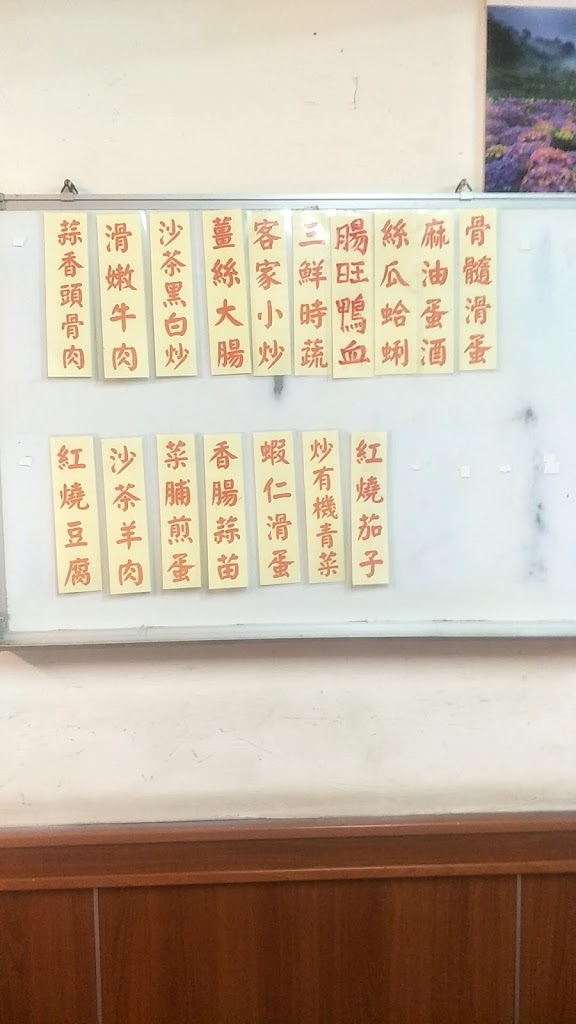 骨髓滑蛋
麻油蛋酒
絲瓜蛤蜊
腸旺鴨血
三鮮時蔬
客家小炒
薑絲大腸
沙茶黑白炒
滑嫩牛肉
蒜香頭骨肉
紅燒茄子
炒有機青菜
蝦仁滑蛋
香腸蒜苗
菜脯煎蛋
沙茶羊肉
紅燒豆腐